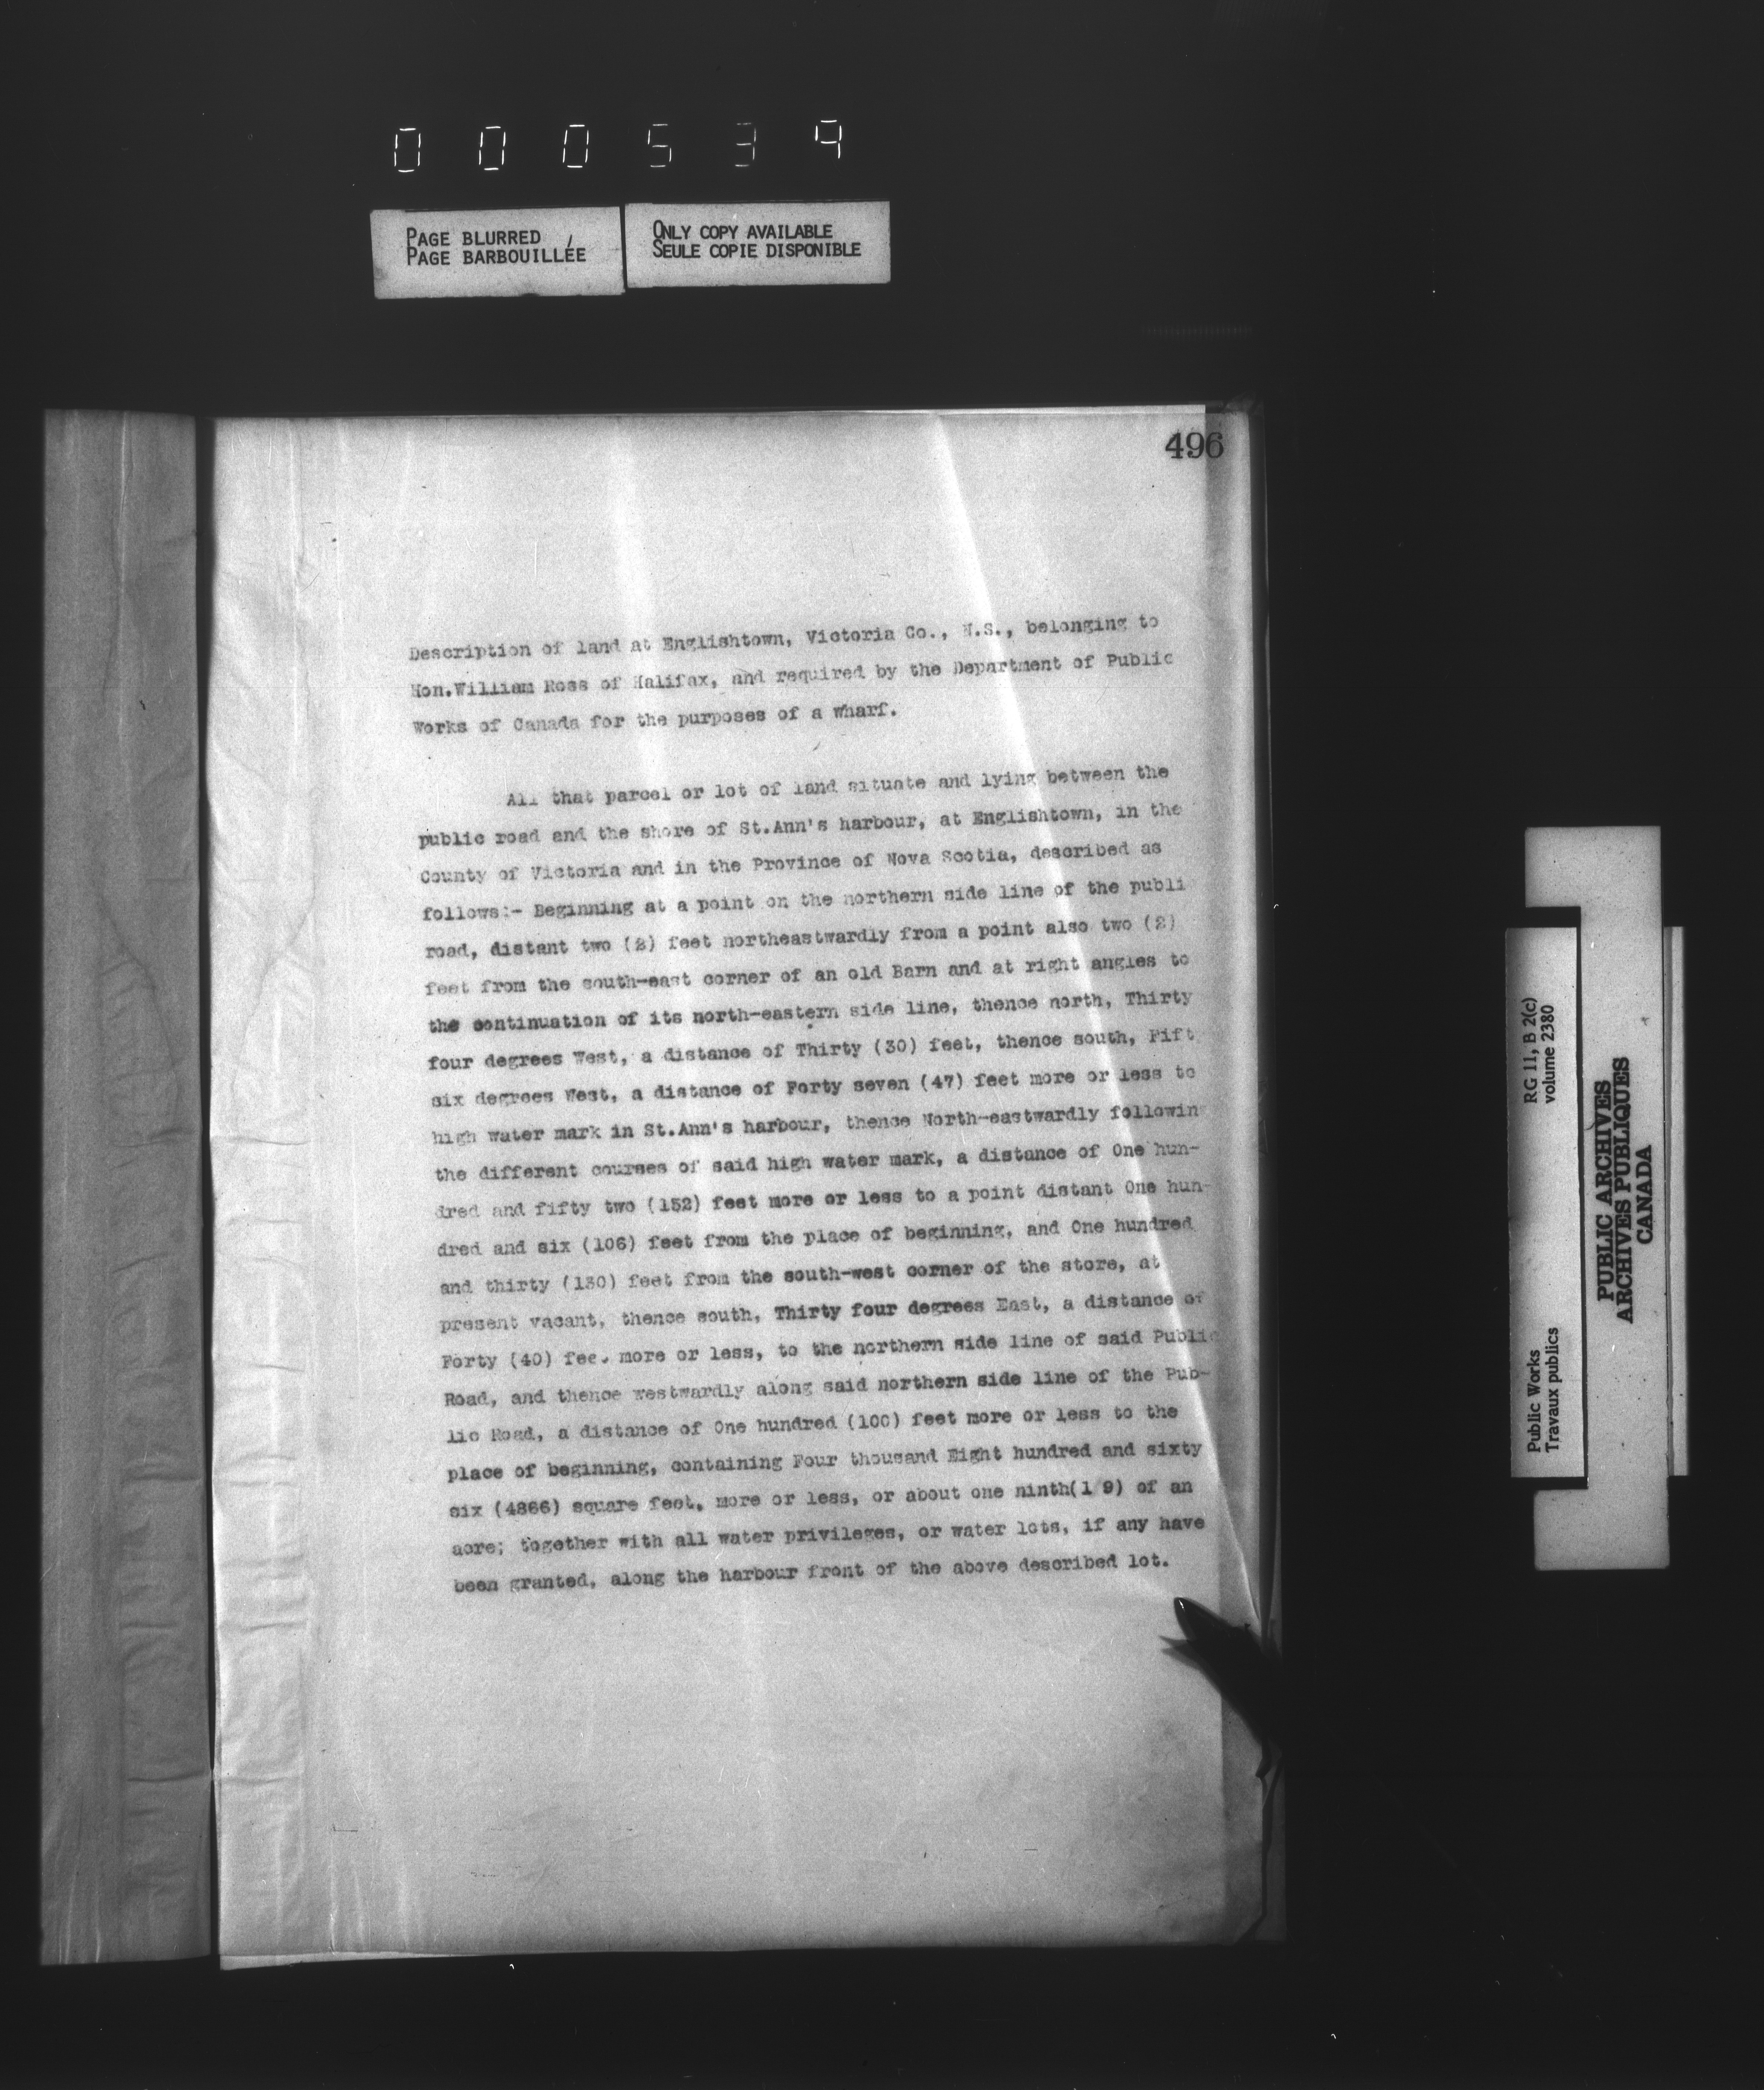 000534
PAGE BLURRED
PAGE BARBOUILLÉE
ONLY COPY AVAILABLE
SEULE COPIE DISPONIBLE
496
Description of land at Englishtown, Victoria Co., N.S., belonging to
Hon.William Ross of Halifax, and required by the Department of Public
Works of Canada for the purposes of a wharf.
All that parcel or lot of land situate and lying between the
public road and the shore of St.Ann's harbour, at Englishtown, in the
County of Victoria and in the Province of Nova Scotia, described as
follows:- Beginning at a point on the northern side line of the publi
road, distant two (2) feet northeastwardly from a point also two (2)
feet from the south-east corner of an old Barn and at right angles to
the continuation of its north-eastern side line, thence north, Thirty
four degrees West, a distance of Thirty (30) feet, thence south, Fift
six degrees West, a distance of Forty seven (47) feet more or less to
high water mark in St.Ann's harbour, thence North-eastwardly followin
the different courses of said high water mark, a distance of One hun-
dred and fifty two (152) feet more or less to a point distant One hun-
dred and six (106) feet from the place of beginning, and One hundred
and thirty (130) feet from the south-west corner of the store, at
present vacant, thence south, Thirty four degrees East, a distance of
Forty (40) fee. more or less, to the northern side line of said Public
Road, and thence westwardly along said northern side line of the Pub-
lic Road, a distance of One hundred (100) feet more or less to the
place of beginning, containing Four thousand Eight hundred and sixty
six (4866) square feet, more or less, or about one ninth(1/9) of an
acre; together with all water privileges, or water lots, if any have
been granted, along the harbour front of the above described lot.
Public Works
Travaux publics
RG 11, B 2(c)
volume 2380
PUBLIC ARCHIVES
ARCHIVES PUBLIQUES
CANADA